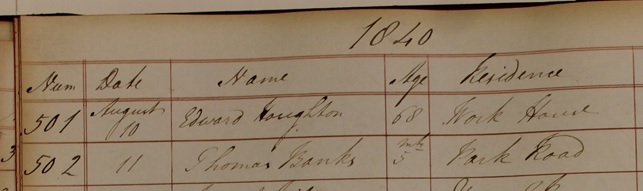 1840
Num Date Name Age Residence
501 August 10 Edward Houghton 68 Work House
502 11 Thomas Banks 5 mths Park Road